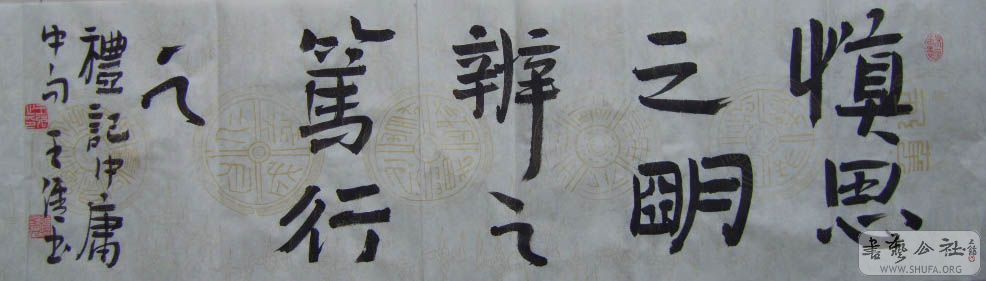 慎思
之明
辨之
篤行
之
禮記中庸
中句 王
書藝公社
WWW.SHUFA.ORG